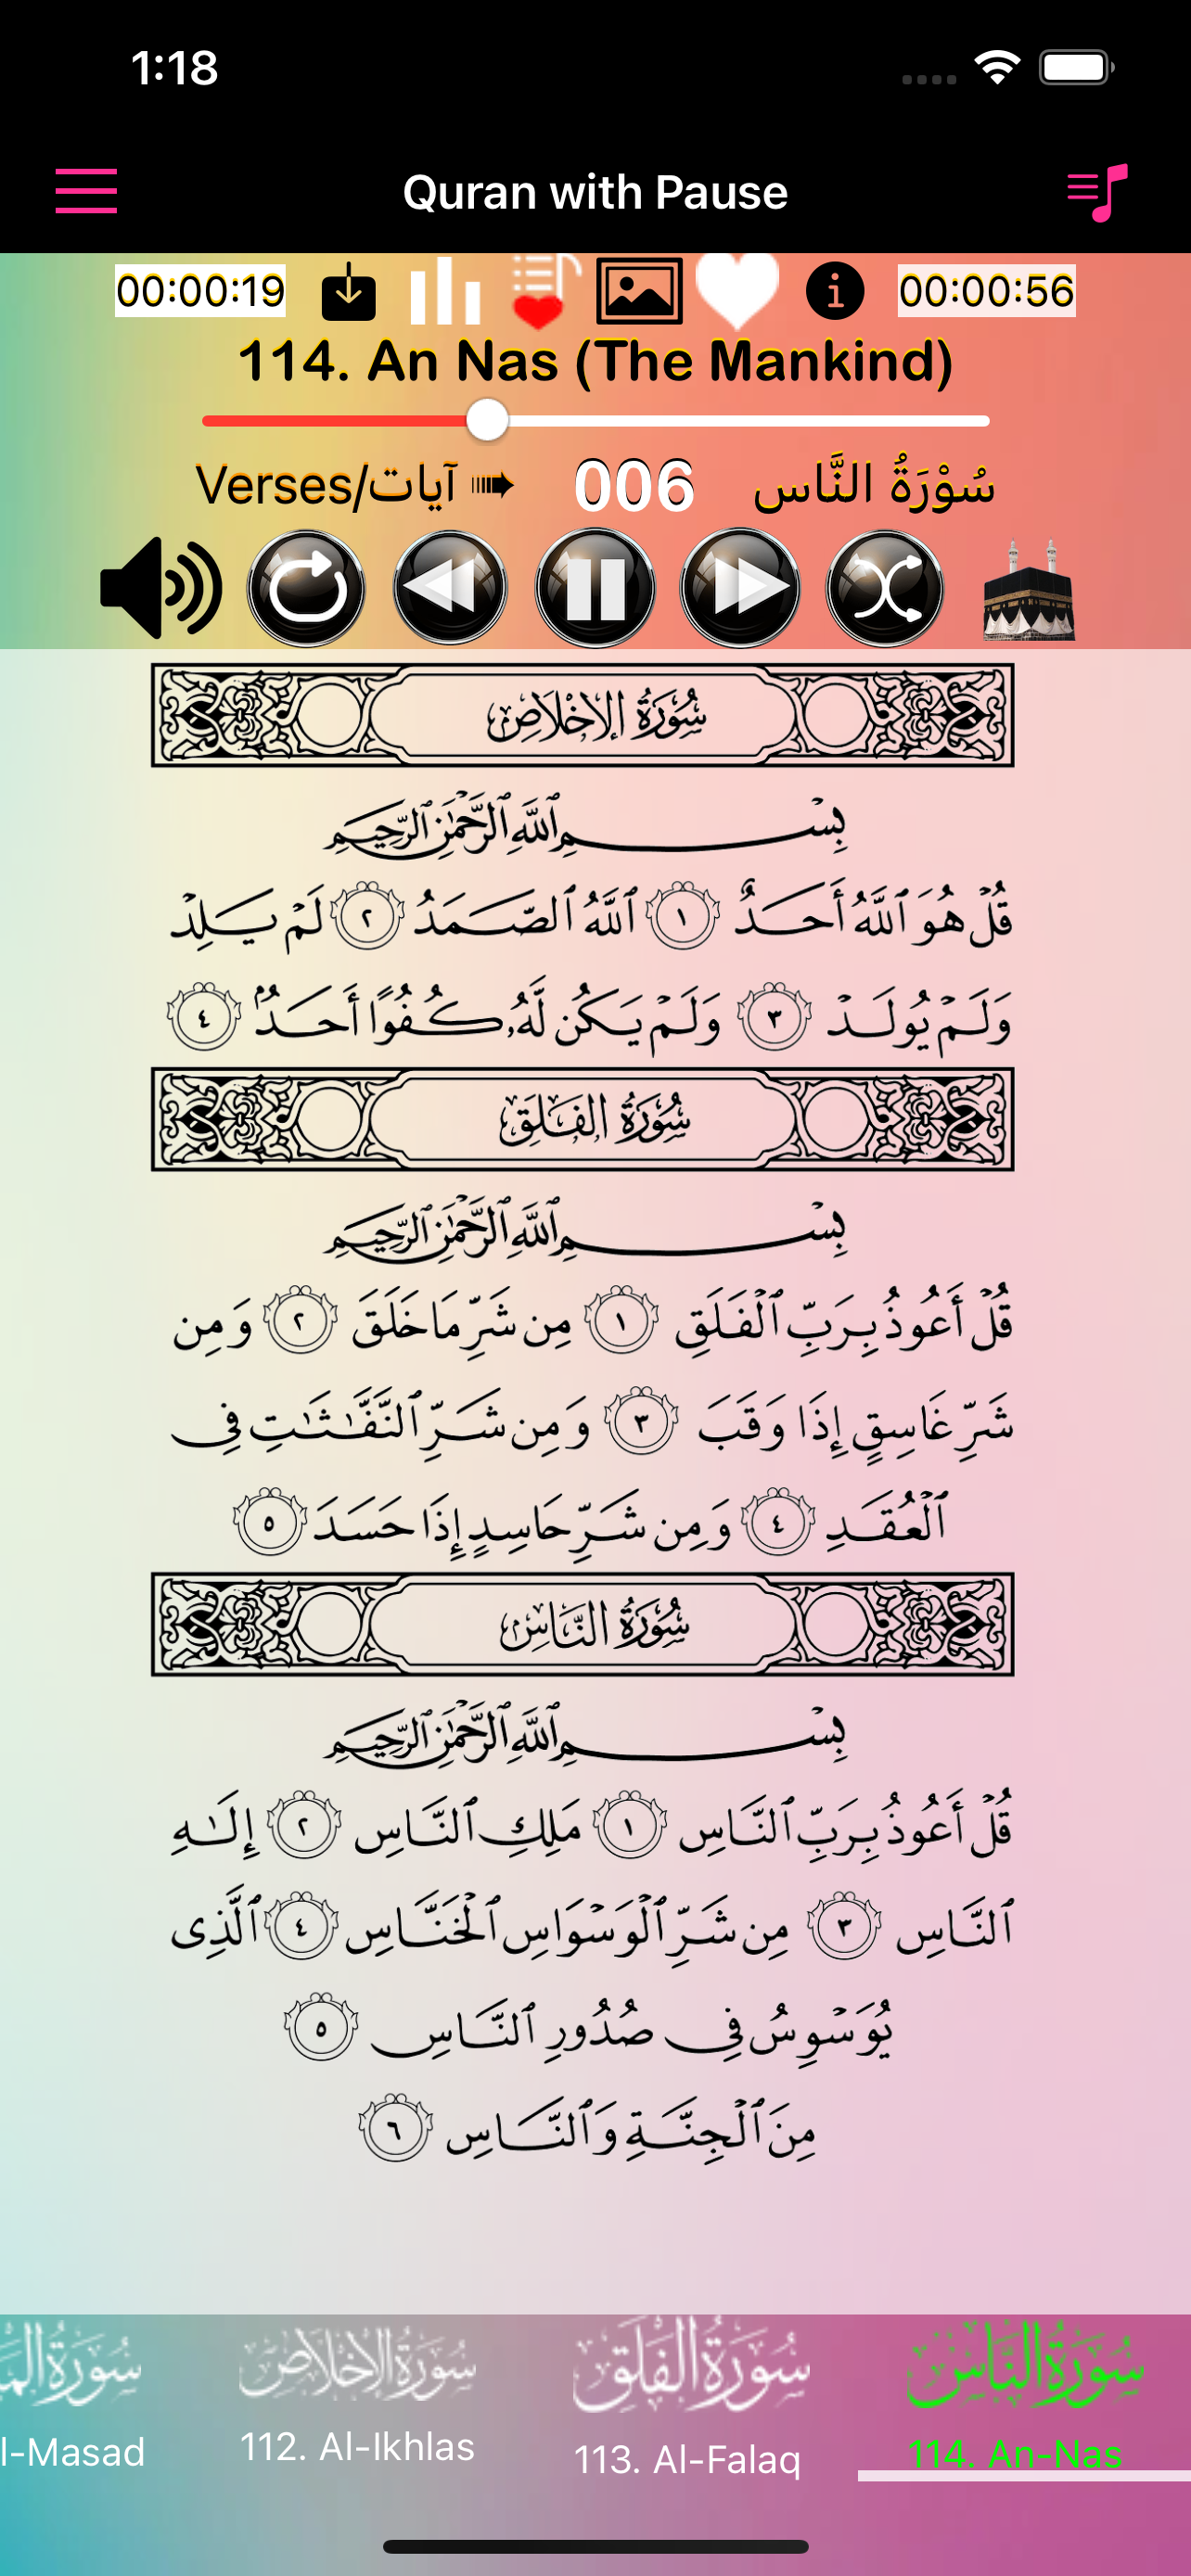 1:18
Quran with Pause
00:00:19 00:00:56
114. An Nas (The Mankind)
Verses/آيات ➠ 006 سُوْرَةُ النَّاس
سُورَةُ الإِخْلَاصِ
بِسْمِ ٱللَّهِ ٱلرَّحْمَٰنِ ٱلرَّحِيمِ
قُلْ هُوَ ٱللَّهُ أَحَدٌ ١ ٱللَّهُ ٱلصَّمَدُ ٢ لَمْ يَلِدْ
وَلَمْ يُولَدْ ٣ وَلَمْ يَكُن لَّهُۥ كُفُوًا أَحَدٌۢ ٤
سُورَةُ الفَلَقِ
بِسْمِ ٱللَّهِ ٱلرَّحْمَٰنِ ٱلرَّحِيمِ
قُلْ أَعُوذُ بِرَبِّ ٱلْفَلَقِ ١ مِن شَرِّ مَا خَلَقَ ٢ وَمِن
شَرِّ غَاسِقٍ إِذَا وَقَبَ ٣ وَمِن شَرِّ ٱلنَّفَّٰثَٰتِ فِى
ٱلْعُقَدِ ٤ وَمِن شَرِّ حَاسِدٍ إِذَا حَسَدَ ٥
سُورَةُ النَّاسِ
بِسْمِ ٱللَّهِ ٱلرَّحْمَٰنِ ٱلرَّحِيمِ
قُلْ أَعُوذُ بِرَبِّ ٱلنَّاسِ ١ مَلِكِ ٱلنَّاسِ ٢ إِلَٰهِ
ٱلنَّاسِ ٣ مِن شَرِّ ٱلْوَسْوَاسِ ٱلْخَنَّاسِ ٤ ٱلَّذِى
يُوَسْوِسُ فِى صُدُورِ ٱلنَّاسِ ٥
مِنَ ٱلْجِنَّةِ وَٱلنَّاسِ ٦
سورة الإخلاص سورة الفلق سورة الناس
l-Masad 112. Al-Ikhlas 113. Al-Falaq 114. An-Nas